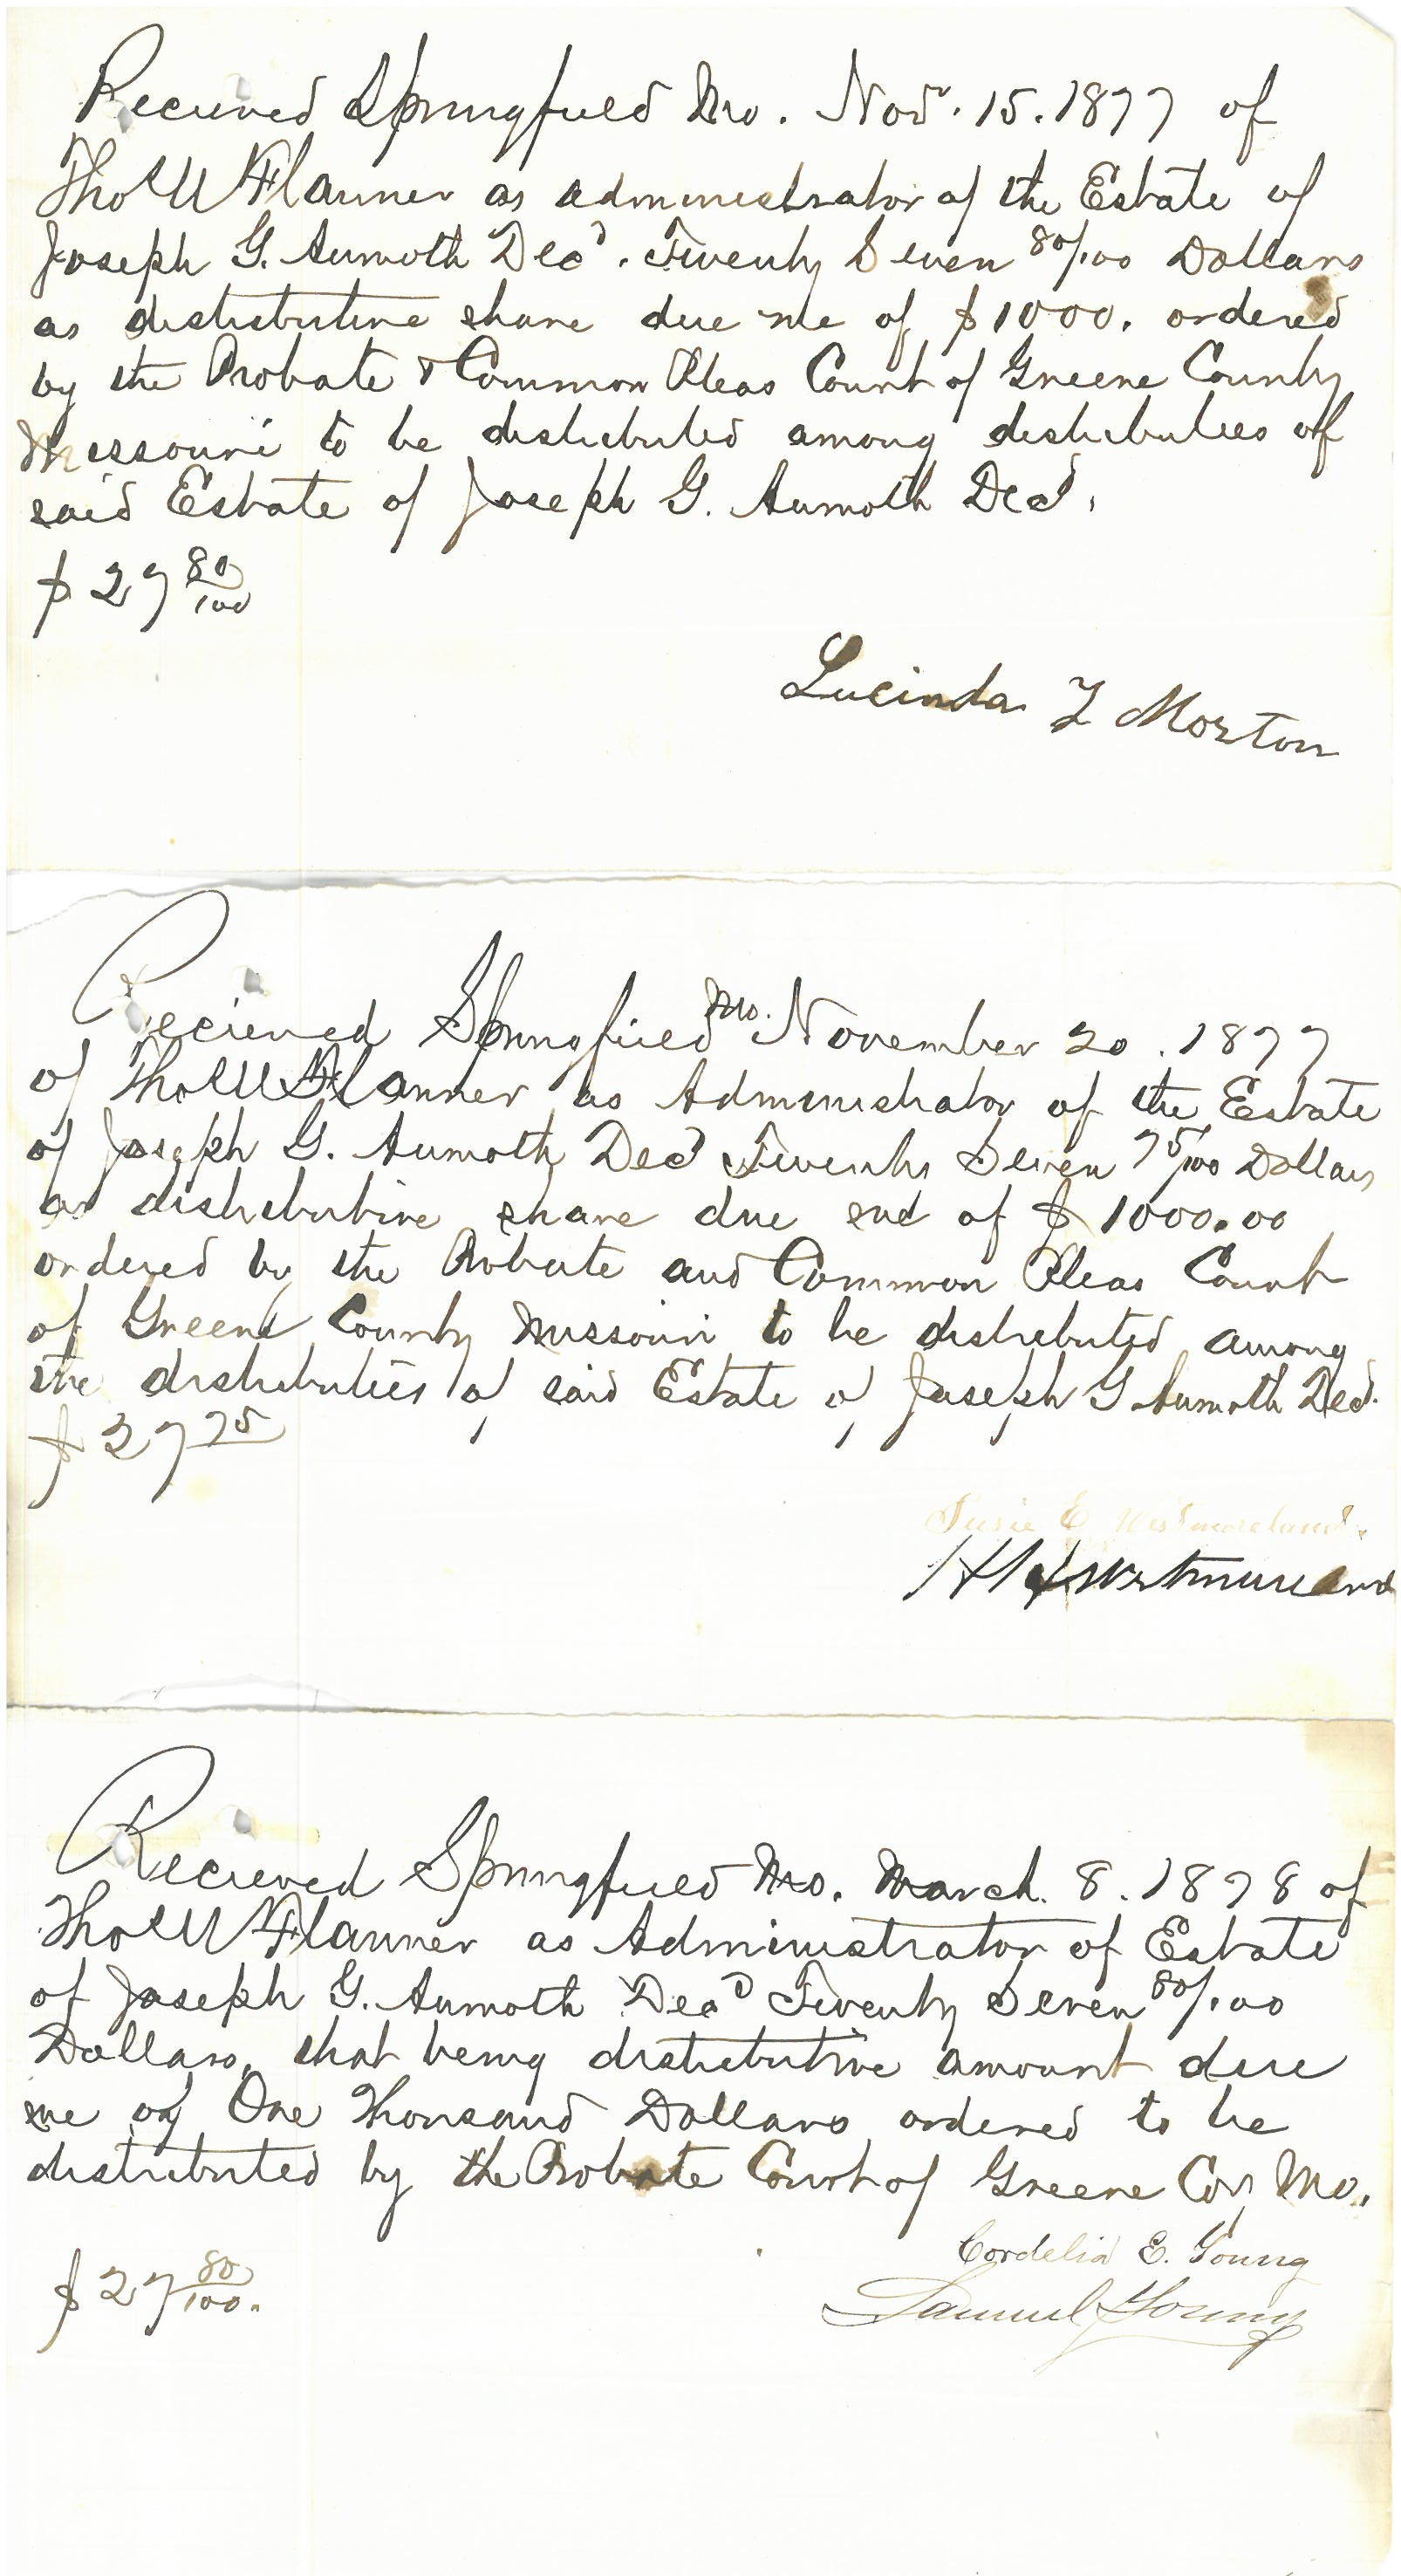 Recieved Springfield Mo. Nov. 15. 1877 of
Thos W Flanner as administrator of the Estate of
Joseph G. Aumoth Decd. Twenty Seven 80/100 Dollars
as distributive share due me of $1000. ordered
by the Probate & Common Pleas Court of Greene County
Missouri to be distributed among distributees of
said Estate of Joseph G. Aumoth Decd.
$27 80/100
Lucinda Morton
Recieved Springfield Mo. November 20. 1877
of Thos W Flanner as Administrator of the Estate
of Joseph G. Aumoth Decd Twenty Seven 75/100 Dollars
as distributive share due me of $1000.00
ordered by the Probate and Common Pleas Court
of Greene County Missouri to be distributed among
the distributees of said Estate of Joseph G Aumoth Decd.
$27 75
Susie E Westmoreland.
Westmoreland
Recieved Springfield Mo. March. 8. 1878 of
Thos W Flanner as Administrator of Estate
of Joseph G. Aumoth Decd Twenty Seven 80/100
Dollars, that being distributive amount due
me of One Thousand Dollars ordered to be
distributed by the Probate Court of Greene Co, Mo.
Cordelia E. Young
$27 80/100.
Samuel Young